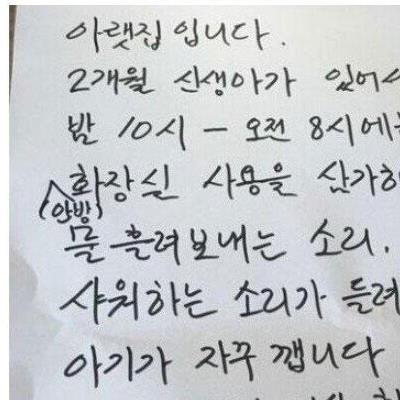 아랫집 입니다.
2개월 신생아가 있어서
밤 10시 - 오전 8시에는
(안방)
화장실 사용을 삼가
물 흘려보내는 소리.
샤워하는 소리가 들려
아기가 자꾸 깹니다